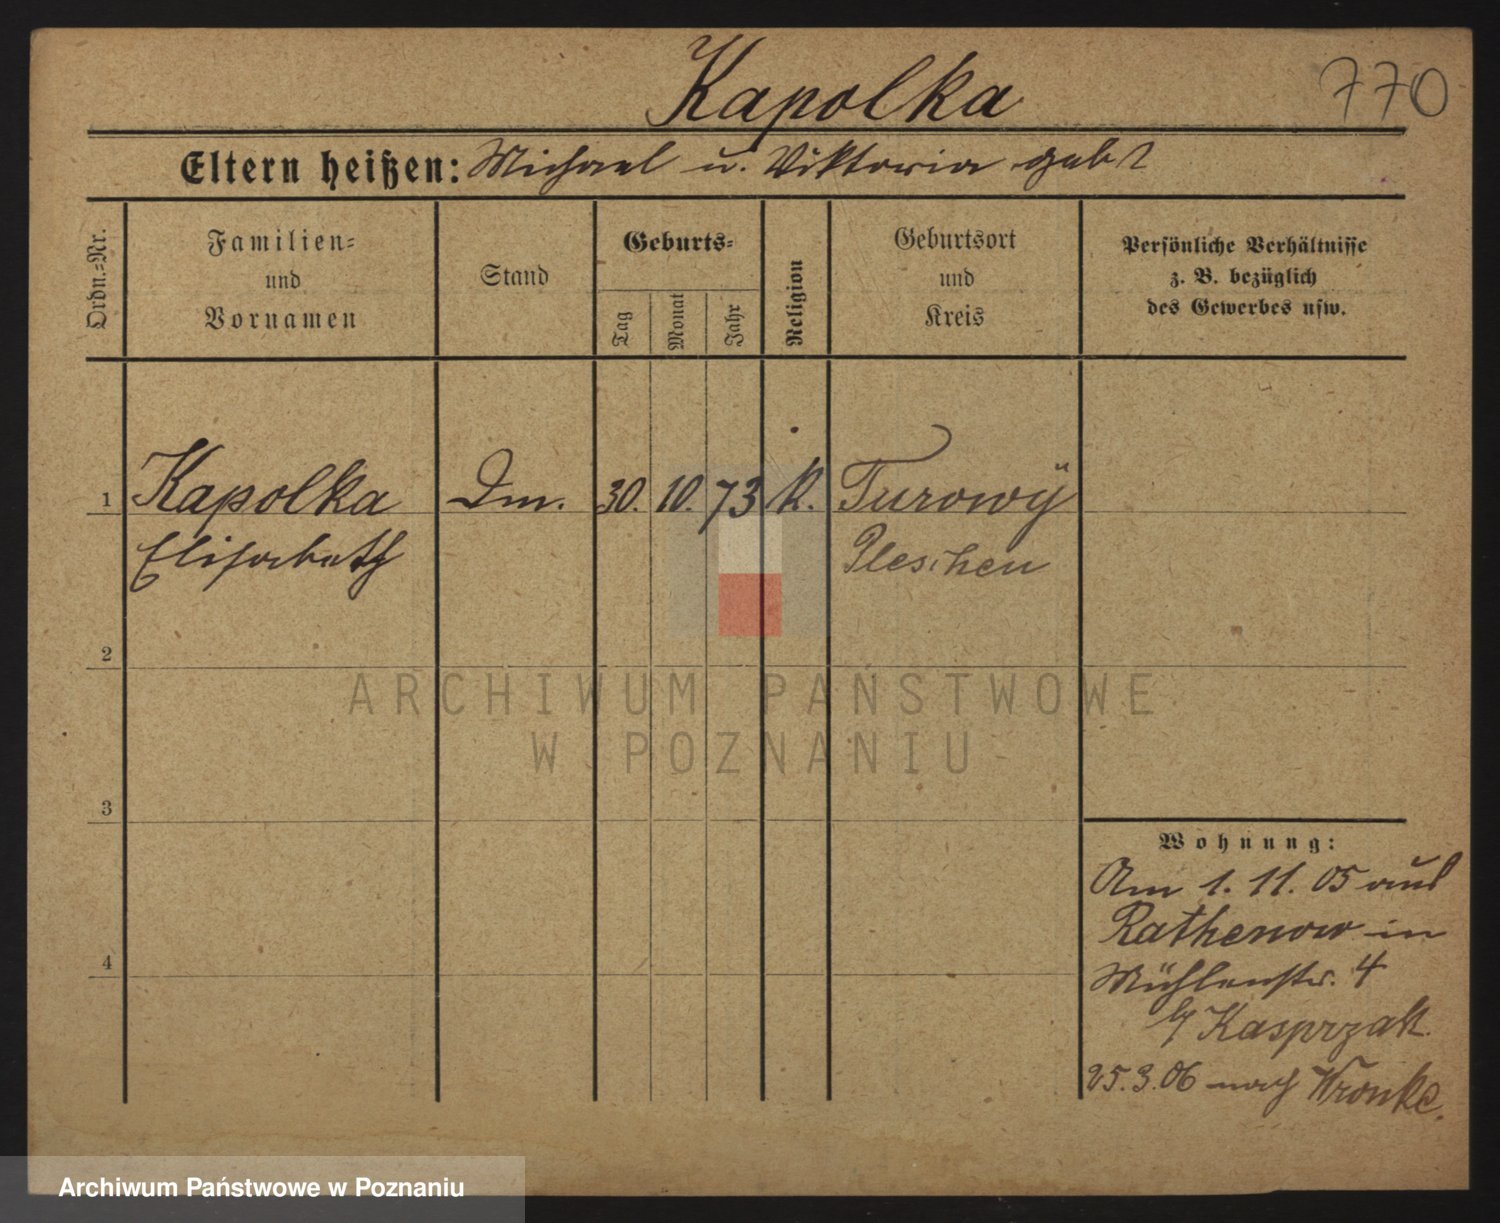 Kapolka
770
Eltern heißen: Michael u. Viktoria geb ?
Ordn.=Nr.
Familien=
und
Vornamen
Stand
Geburts=
Tag
Monat
Jahr
Religion
Geburtsort
und
Kreis
Persönliche Verhältnisse
z. B. bezüglich
des Gewerbes usw.
1 Kapolka Dm. 30. 10. 73 K. Turowÿ
Elisabeth Pleschen
2
ARCHIWUM PAŃSTWOWE
W POZNANIU
3
Wohnung:
Am 1. 11. 05 aus
Rathenow in
Mühlenstr. 4
b/ Kasprzak.
4
25.3.06 nach Wronke.
Archiwum Państwowe w Poznaniu